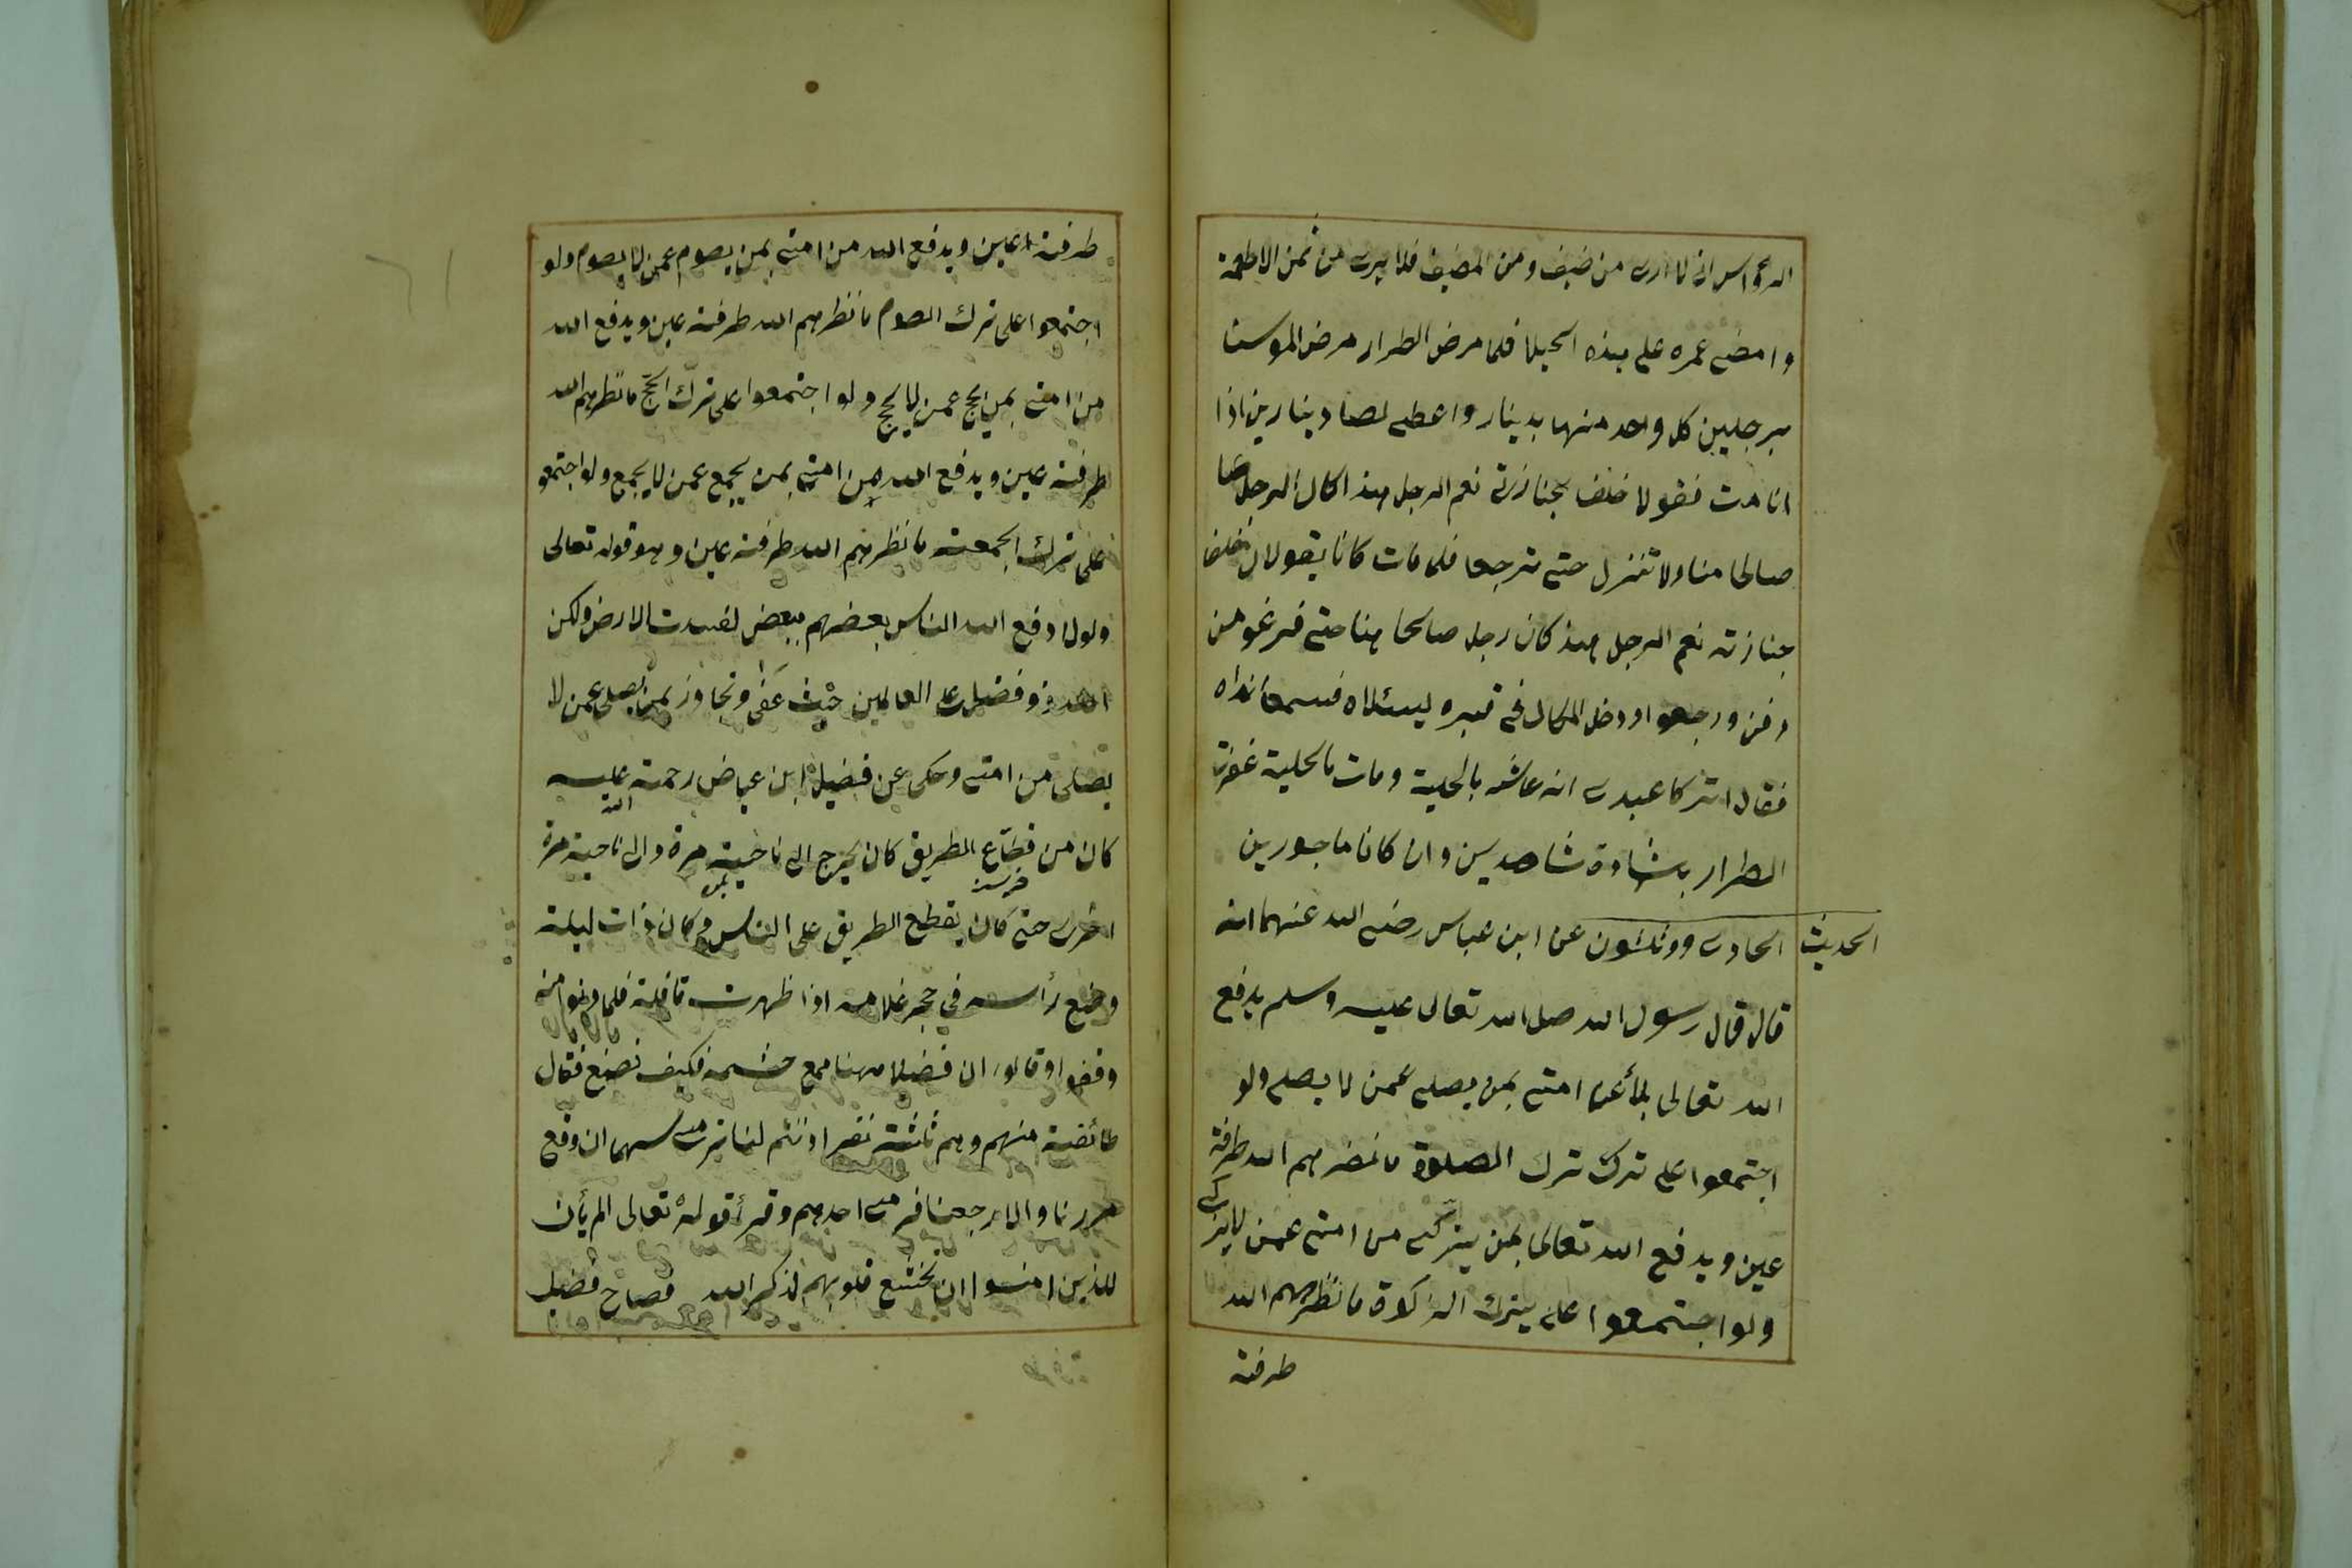 الرواس انى لا ادرى من ضيف ومن المضيف فلا يبرى من ثمن الاطعمة
وامضى عمره على هذه الحيلة فلما مرض الطرار مرض الموت
برجلين كل واحد منهما بدينار واعطى لهما دينارين اذا
انا مت فقولا خلف جنازتى نعم الرجل هذا كان الرجل
صالحا منا ولا تنزل حتى ترجعا فلما مات كانا يقولان خلف
جنازته نعم الرجل هذا كان رجل صالحا منا حتى فرغو من
دفن ورجعوا ودخل الملكان فى قبره ليسئلاه فسمعا نداه
فقال اتركا عبدى انه عاش بالحلية ومات بالحلية غفرت
الطرار بشهادة شاهدين وان كانا ماجورين
الحديث الحادى وثلثون عن ابن عباس رضى الله عنهما انه
قال قال رسول الله صلى الله تعالى عليه وسلم يدفع
الله تعالى بلاء عن امتى بمن يصلى عمن لا يصلى ولو
اجتمعوا على ترك ترك الصلوة ما نضرهم الله طرفة
عين ويدفع الله تعالى بمن يزكى من امتى عمن لا يزكى
ولو اجتمعوا على يترك الزكوة ما نظرهم الله
طرفة
طرفة عين ويدفع الله من امتى بمن يصوم عمن لا يصوم ولو
اجتمعوا على ترك الصوم ما نظرهم الله طرفة عين ويدفع الله
من امتى بمن يحج عمن لا يحج ولو اجتمعوا على ترك الحج ما نظرهم الله
طرفة عين ويدفع الله من امتى بمن يجمع عمن لا يجمع ولو اجتمعو
على ترك الجمعة ما نظرهم الله طرفة عين وهو قوله تعالى
ولولا دفع الله الناس بعضهم ببعض لفسدت الارض ولكن
الله ذو فضل على العالمين حيث عفى وتجاوز بمن يصلى عمن لا
يصلى من امتى وحكى عن فضيل ابن عياض رحمة الله عليه
كان من قطاع الطريق كان يخرج الى ناحية مرة والى ناحية مرة
اخرى حتى كان يقطع الطريق على الناس كان ذات ليلة
وضع رأسه فى حجر غلامه اذا ظهرت قافلة فلما دنوا منه
وقفوا وقالوا ان فضيلا مهنا مع حشمه فكيف نصنع فقال
طائفة منهم وهم ثلثة نفر اذنتم لنا نرمى سهما ان وقع
مررنا والا رجعنا فرمى احدهم وقرأ قوله تعالى الم يأن
للذين امنوا ان تخشع قلوبهم لذكر الله فصاح فضيل
٦١